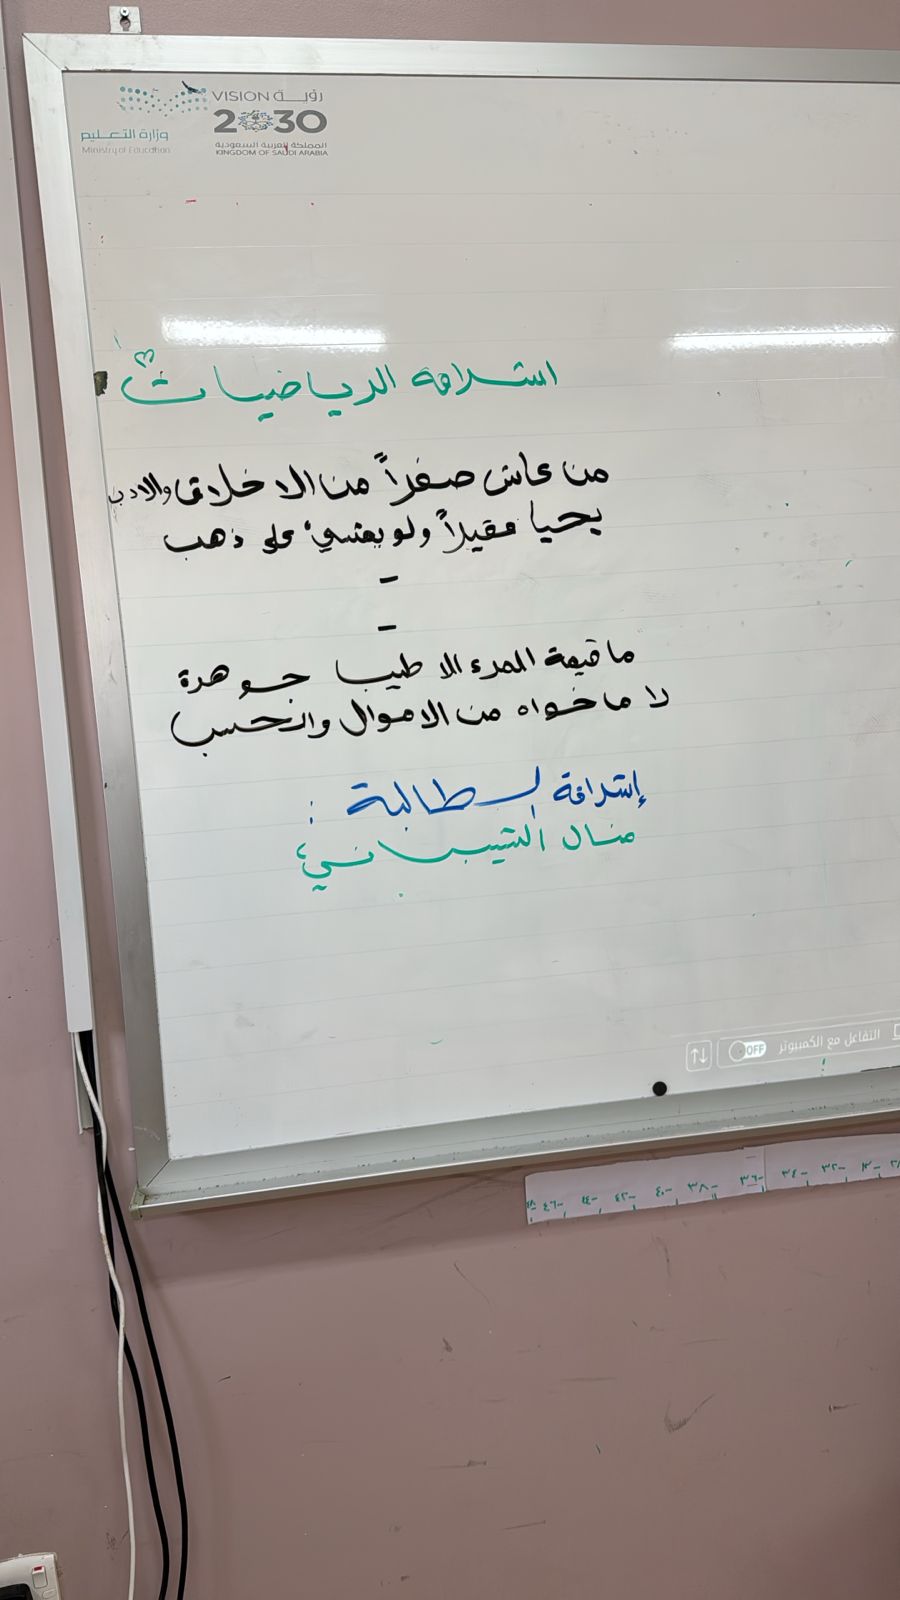 رؤيــة VISION
2030
المملكة العربية السعودية
KINGDOM OF SAUDI ARABIA
وزارة التعـــليم
Ministry of Education
اشراقة الرياضيات
من عاش صفراً من الاخلاق والادب
يحيا فقيراً ولو يمشي على ذهب
-
-
ما قيمة المرء الا طيب جوهرة
لا ما حواه من الاموال والحسب
إشراقة الطالبة :
منال الشيباني
التفاعل مع الكمبيوتر OFF
٤٦- ٤٤- ٤٢- ٤٠- ٣٨- ٣٦- ٣٤- ٣٢- ٣٠- ٢٨